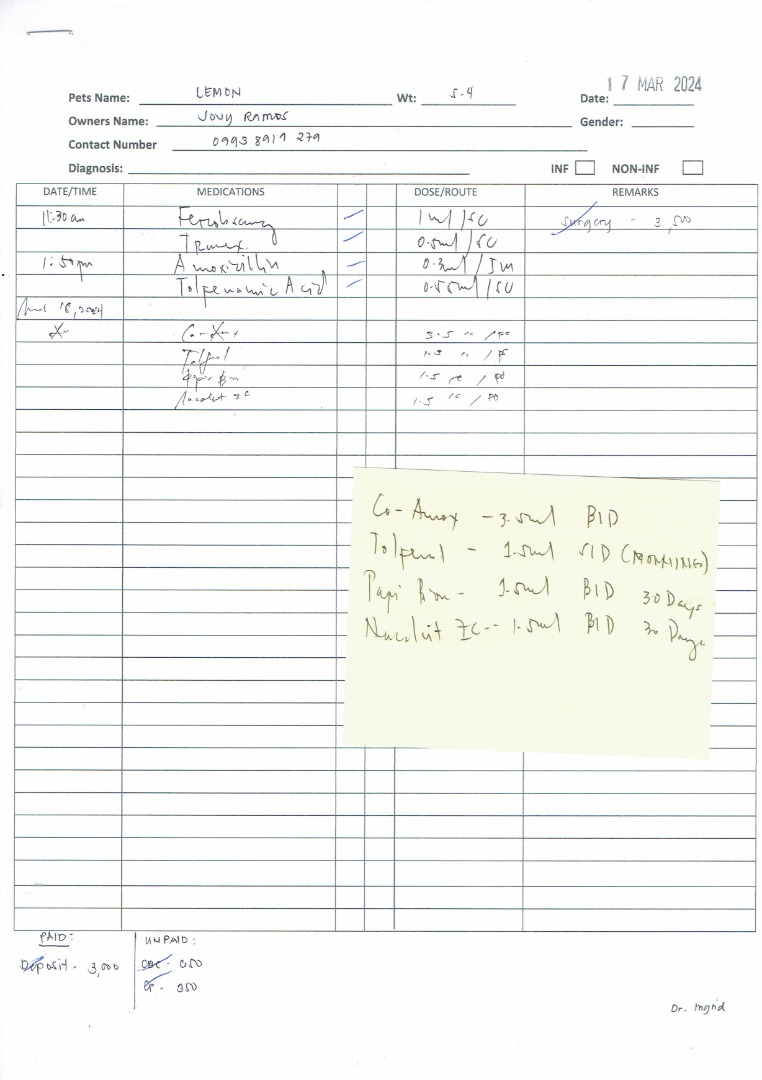 17 MAR 2024
Pets Name: LEMON Wt: 5.4 Date:
Owners Name: JOVY RAMOS Gender:
Contact Number 0993 8919 279
Diagnosis: INF NON-INF
DATE/TIME MEDICATIONS DOSE/ROUTE REMARKS
11:30 am 1ml/SC Surgery - 3,500
Tranex 0.5ml/SC
1:50 pm Amoxicillin 0.3ml/IM
Tolfenamic Acid 0.55ml/SC
18, 2024
3.5 cc/po
Tolfenol 1.5 cc/
Papi Bion 1.5 cc/po
Nacalvit ZC 1.5 cc/po
Co-Amox - 3.5ml BID
Tolfenol - 1.5ml SID (MORNING)
Papi Bion - 1.5ml BID 30 Days
Nacalvit ZC - 1.5ml BID 30 Days
PAID: UNPAID:
Deposit - 3,000 CBC - 950
950
Dr. Ingrid